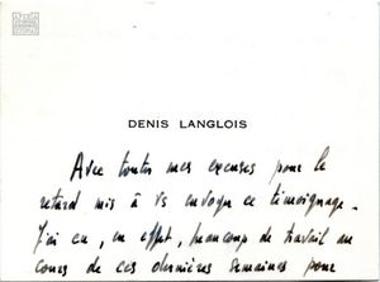 DENIS LANGLOIS
Avec toutes mes excuses pour le
retard mis à vs envoyer ce témoignage.
J'ai eu, en effet, beaucoup de travail au
cours de ces dernières semaines pour